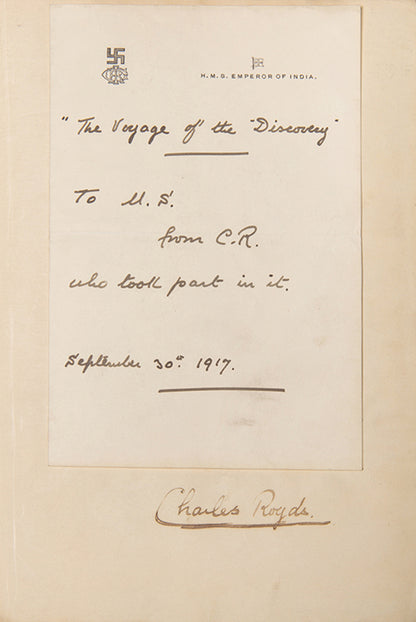 H.M.S. EMPEROR OF INDIA.
"The Voyage of the "Discovery"
To M.S.
from C.R.
who took part in it.
September 30th. 1917.
Charles Royds.